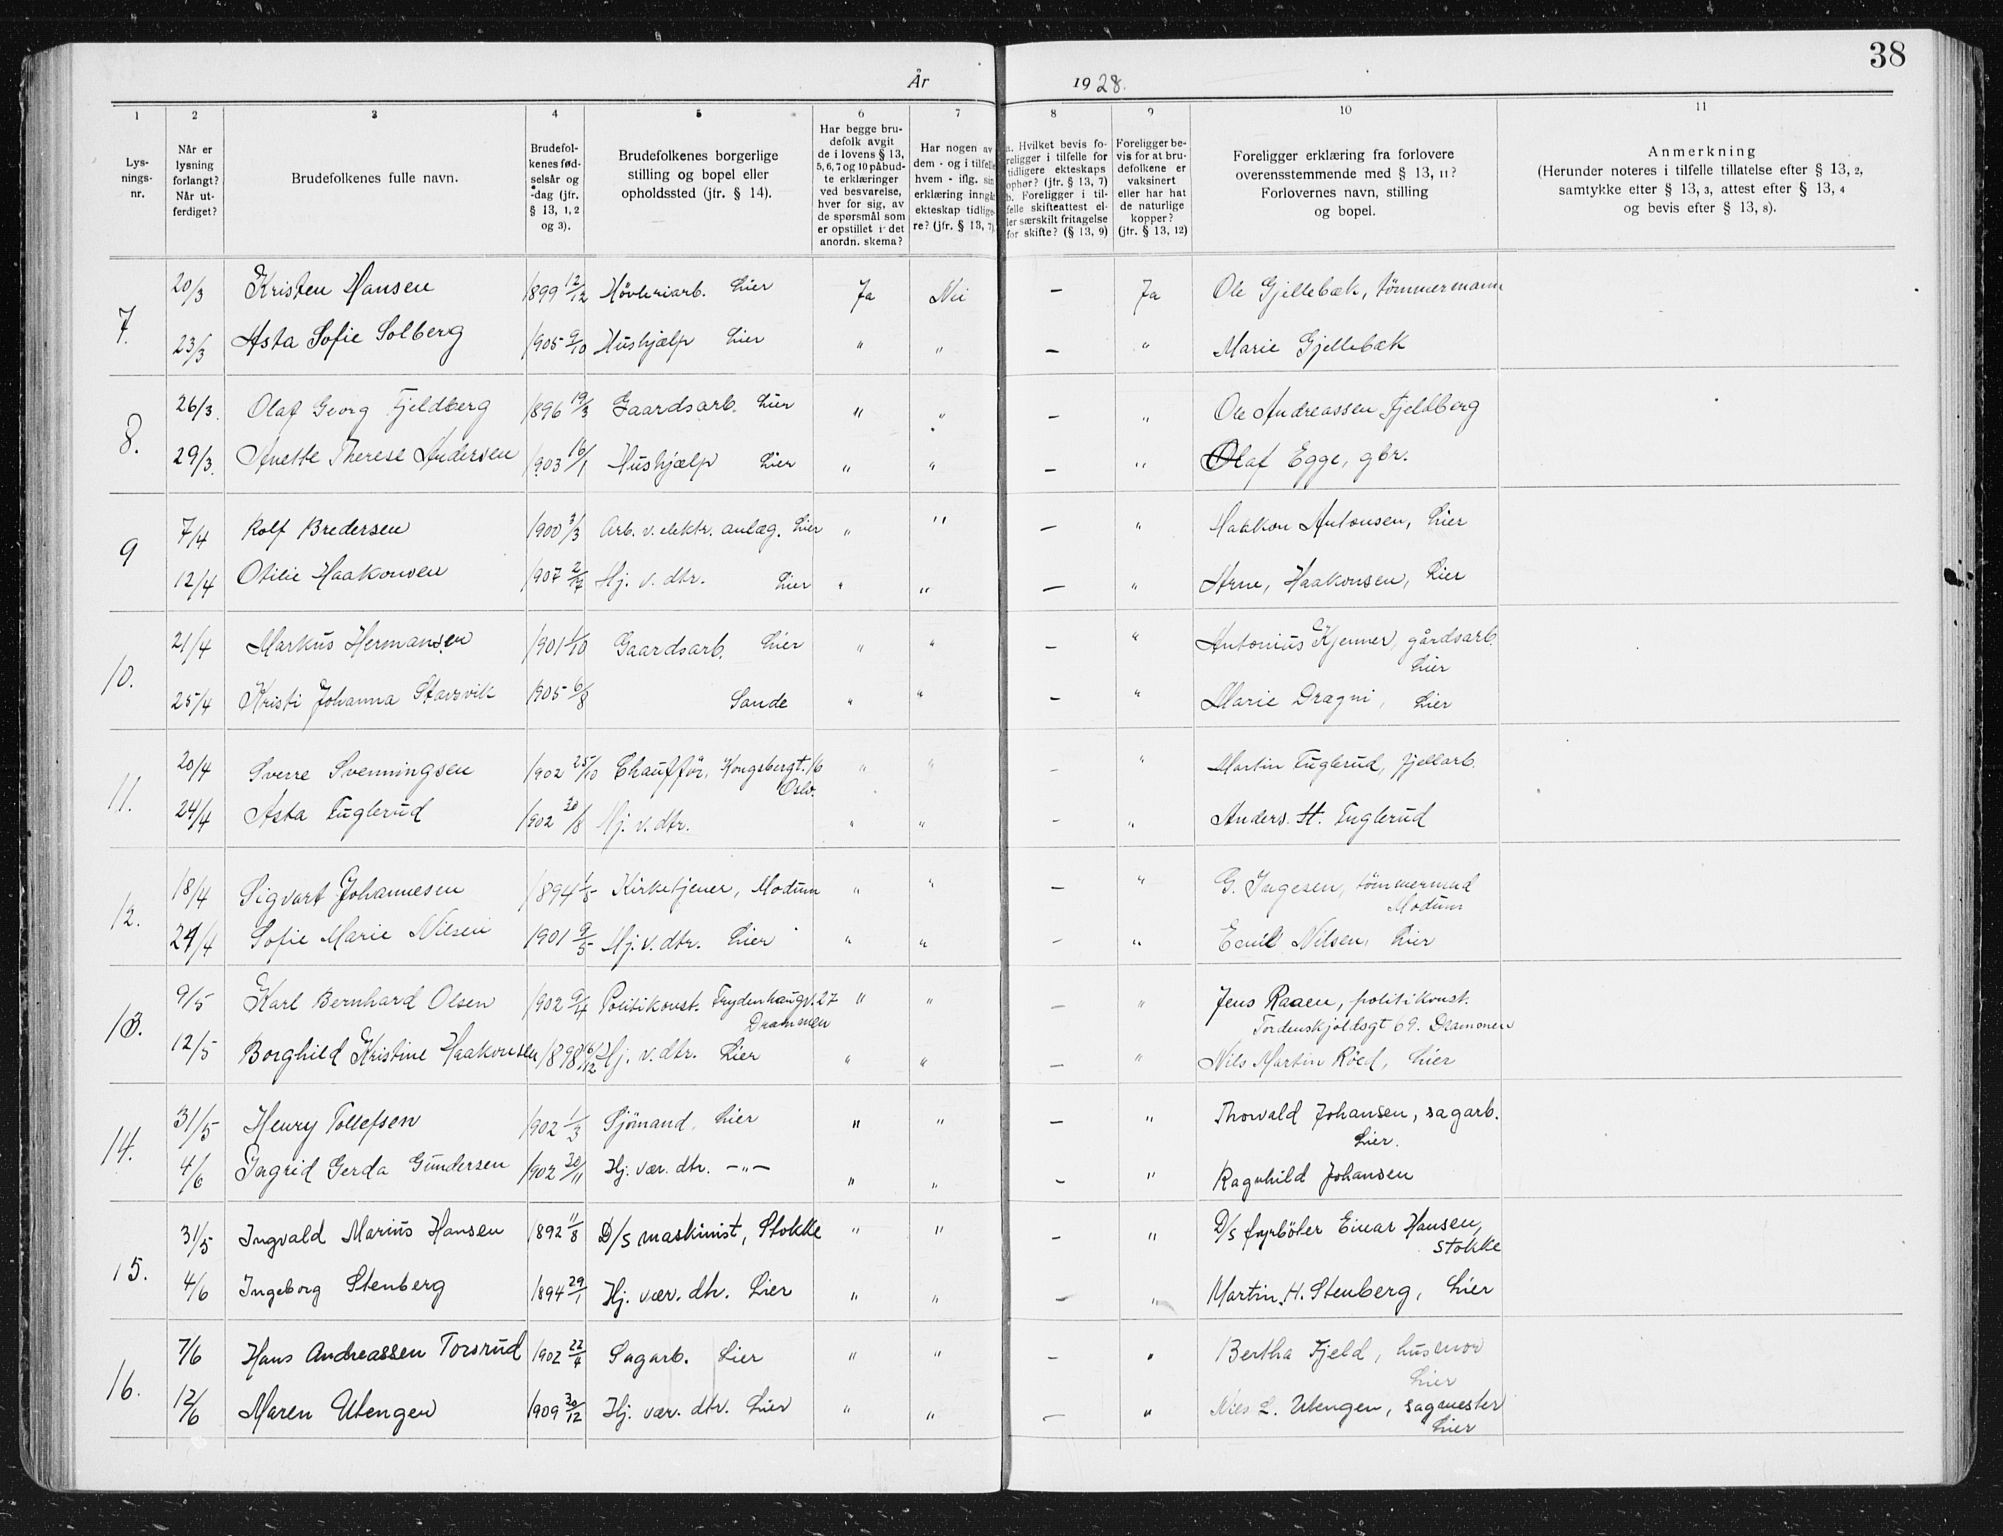 38
År 1928.
1 2 3 4 5 6 7 8 9 10 11
Lys-
nings-
nr.
Når er
lysning
forlangt?
Når ut-
ferdiget?
Brudefolkenes fulle navn.
Brudefol-
kenes fød-
selsår og
-dag (jfr.
§ 13, 1, 2
og 3).
Brudefolkenes borgerlige
stilling og bopel eller
opholdssted (jfr. § 14).
Har begge bru-
defolk avgit
de i lovens § 13,
5, 6, 7 og 10 påbud-
te erklæringer
ved besvarelse,
hver for sig, av
de spørsmål som
er opstillet i det
anordn. skema?
Har nogen av
dem - og i tilfelle
hvem - iflg. sin
erklæring inngå
ekteskap tidlige-
re? (jfr. § 13, 7)
a. Hvilket bevis fo-
religger i tilfelle for
tidligere ekteskaps
ophør? (jfr. § 13, 7)
b. Foreligger i til-
felle skifteattest el-
ler særskilt fritagelse
for skifte? (§ 13, 9)
Foreligger be-
vis for at bru-
defolkene er
vaksinert
eller har hat
de naturlige
kopper?
(jfr. § 13, 12)
Foreligger erklæring fra forlovere
overensstemmende med § 13, 11?
Forlovernes navn, stilling
og bopel.
Anmerkning
(Herunder noteres i tilfelle tillatelse efter § 13, 2,
samtykke efter § 13, 3, attest efter § 13, 4
og bevis efter § 13, 8).
7. 20/3 Kristen Hansen 1899 12/12 Høvleriarb. Lier Ja Nei — Ja Ole Gjellebæk, tømmermann
23/3 Asta Sofie Solberg 1905 9/10 Hushjælp Lier " " — " Marie Gjellebæk
8. 26/3. Olaf Georg Fjeldberg 1896 19/3 Gaardsarb. Lier " " — " Ole Andreassen Fjeldberg
29/3. Anette Therese Andersen 1903 16/1 Hushjælp Lier " " — " Olaf Egge, gbr.
9 7/4 Rolf Bredersen 1900 3/3 Arb. v. elektr. anlæg. Lier " " — " Haakon Antonsen, Lier
12/4 Otilie Haakonsen 1907 2/7 Hj. v. dtr. Lier " " — " Arne, Haakonsen, Lier
10. 21/4 Markus Hermansen 1901 1/10 Gaardsarb. Lier " " — " Antonius Kjenner, gårdsarb.
Lier
25/4 Kristi Johanna Stavsvik 1905 6/8 Sande " " — " Marie Dragni, Lier
11. 20/4 Sverre Svenningsen 1902 25/10 Chauffør, Kongsbergt. 16 " " — " Martin Fuglerud, fjellarb.
Oslo.
24/4 Asta Fuglerud 1902 30/8 Hj. v. dtr. " " — " Anders. H. Fuglerud
12. 18/4 Sigvart Johannesen 1894 1/8 Kirketjener, Modum " " — " G. Ingesen, tømmermd
Modum
24/4 Sofie Marie Nilsen 1901 9/5 Hj. v. dtr. Lier " " — " Emil Nilsen, Lier
13. 9/5 Karl Bernhard Olsen 1902 9/4 Politikonst. Frydenhaugv. 27 " " — " Jens Raaen, politikonst.
Drammen Tordenskjoldsgt 69. Drammen
12/5 Borghild Kristine Haakonsen 1898 16/12 Hj. v. dtr. Lier " " — " Nils Martin Röed, Lier
14. 31/5 Henry Tollefsen 1902 1/3 Sjömand, Lier " " — " Thorvald Johansen, sagarb.
Lier.
4/6 Ingrid Gerda Gundersen 1902 30/11 Hj. vær. dtr. —"— " " — " Ragnhild Johansen
15. 31/5 Ingvald Marius Hansen 1892 11/8 D/s maskinist, Stokke " " — " D/s fyrböter Einar Hansen,
Stokke
4/6 Ingeborg Stenberg 1894 29/1 Hj. vær. dtr. Lier " " — " Martin. H. Stenberg, Lier
16. 7/6 Hans Andreassen Torsrud 1902 22/4 Sagarb. Lier " " — " Bertha Fjeld, husmor
Lier
12/6 Maren Utengen 1909 30/12 Hj. vær. dtr. Lier " " — " Nils L. Utengen, sagmester
Lier